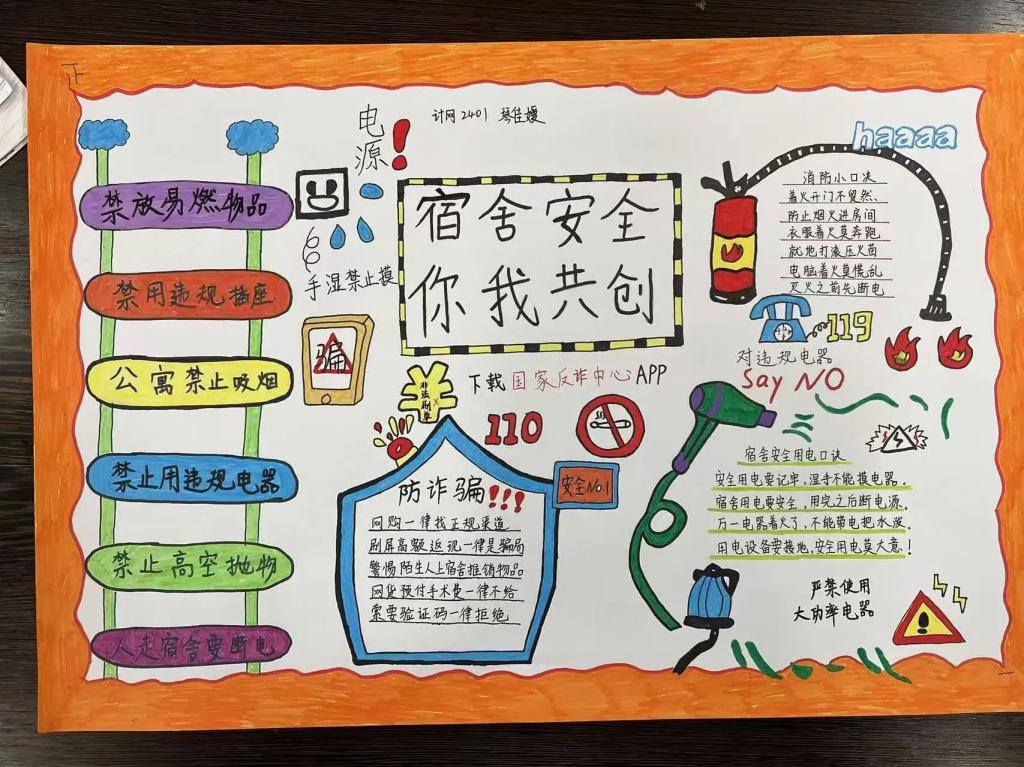 计网2401 琴佳嫚
电源!
手湿禁止摸
宿舍安全
你我共创
禁放易燃物品
禁用违规插座
公寓禁止吸烟
禁止用违规电器
禁止高空抛物
人走宿舍要断电
骗
非法刷单
下载国家反诈中心APP
110
安全No.1
防诈骗!!!
网购一律找正规渠道
刷屏高额返现一律是骗局
警惕陌生人上宿舍推销物品
网贷预付手术费一律不给
索要验证码一律拒绝
haaaa
消防小口决
着火开门不贸然、
防止烟火进房间
衣服着火莫奔跑
就地打滚压火苗
电脑着火莫慌乱
灭火之前先断电
119
对违规电器
Say NO
宿舍安全用电口诀
安全用电要记牢,湿手不能摸电器.
宿舍用电要安全,用完之后断电源.
万一电器着火了,不能带电把水泼.
用电设备要接地,安全用电莫大意!
严禁使用
大功率电器